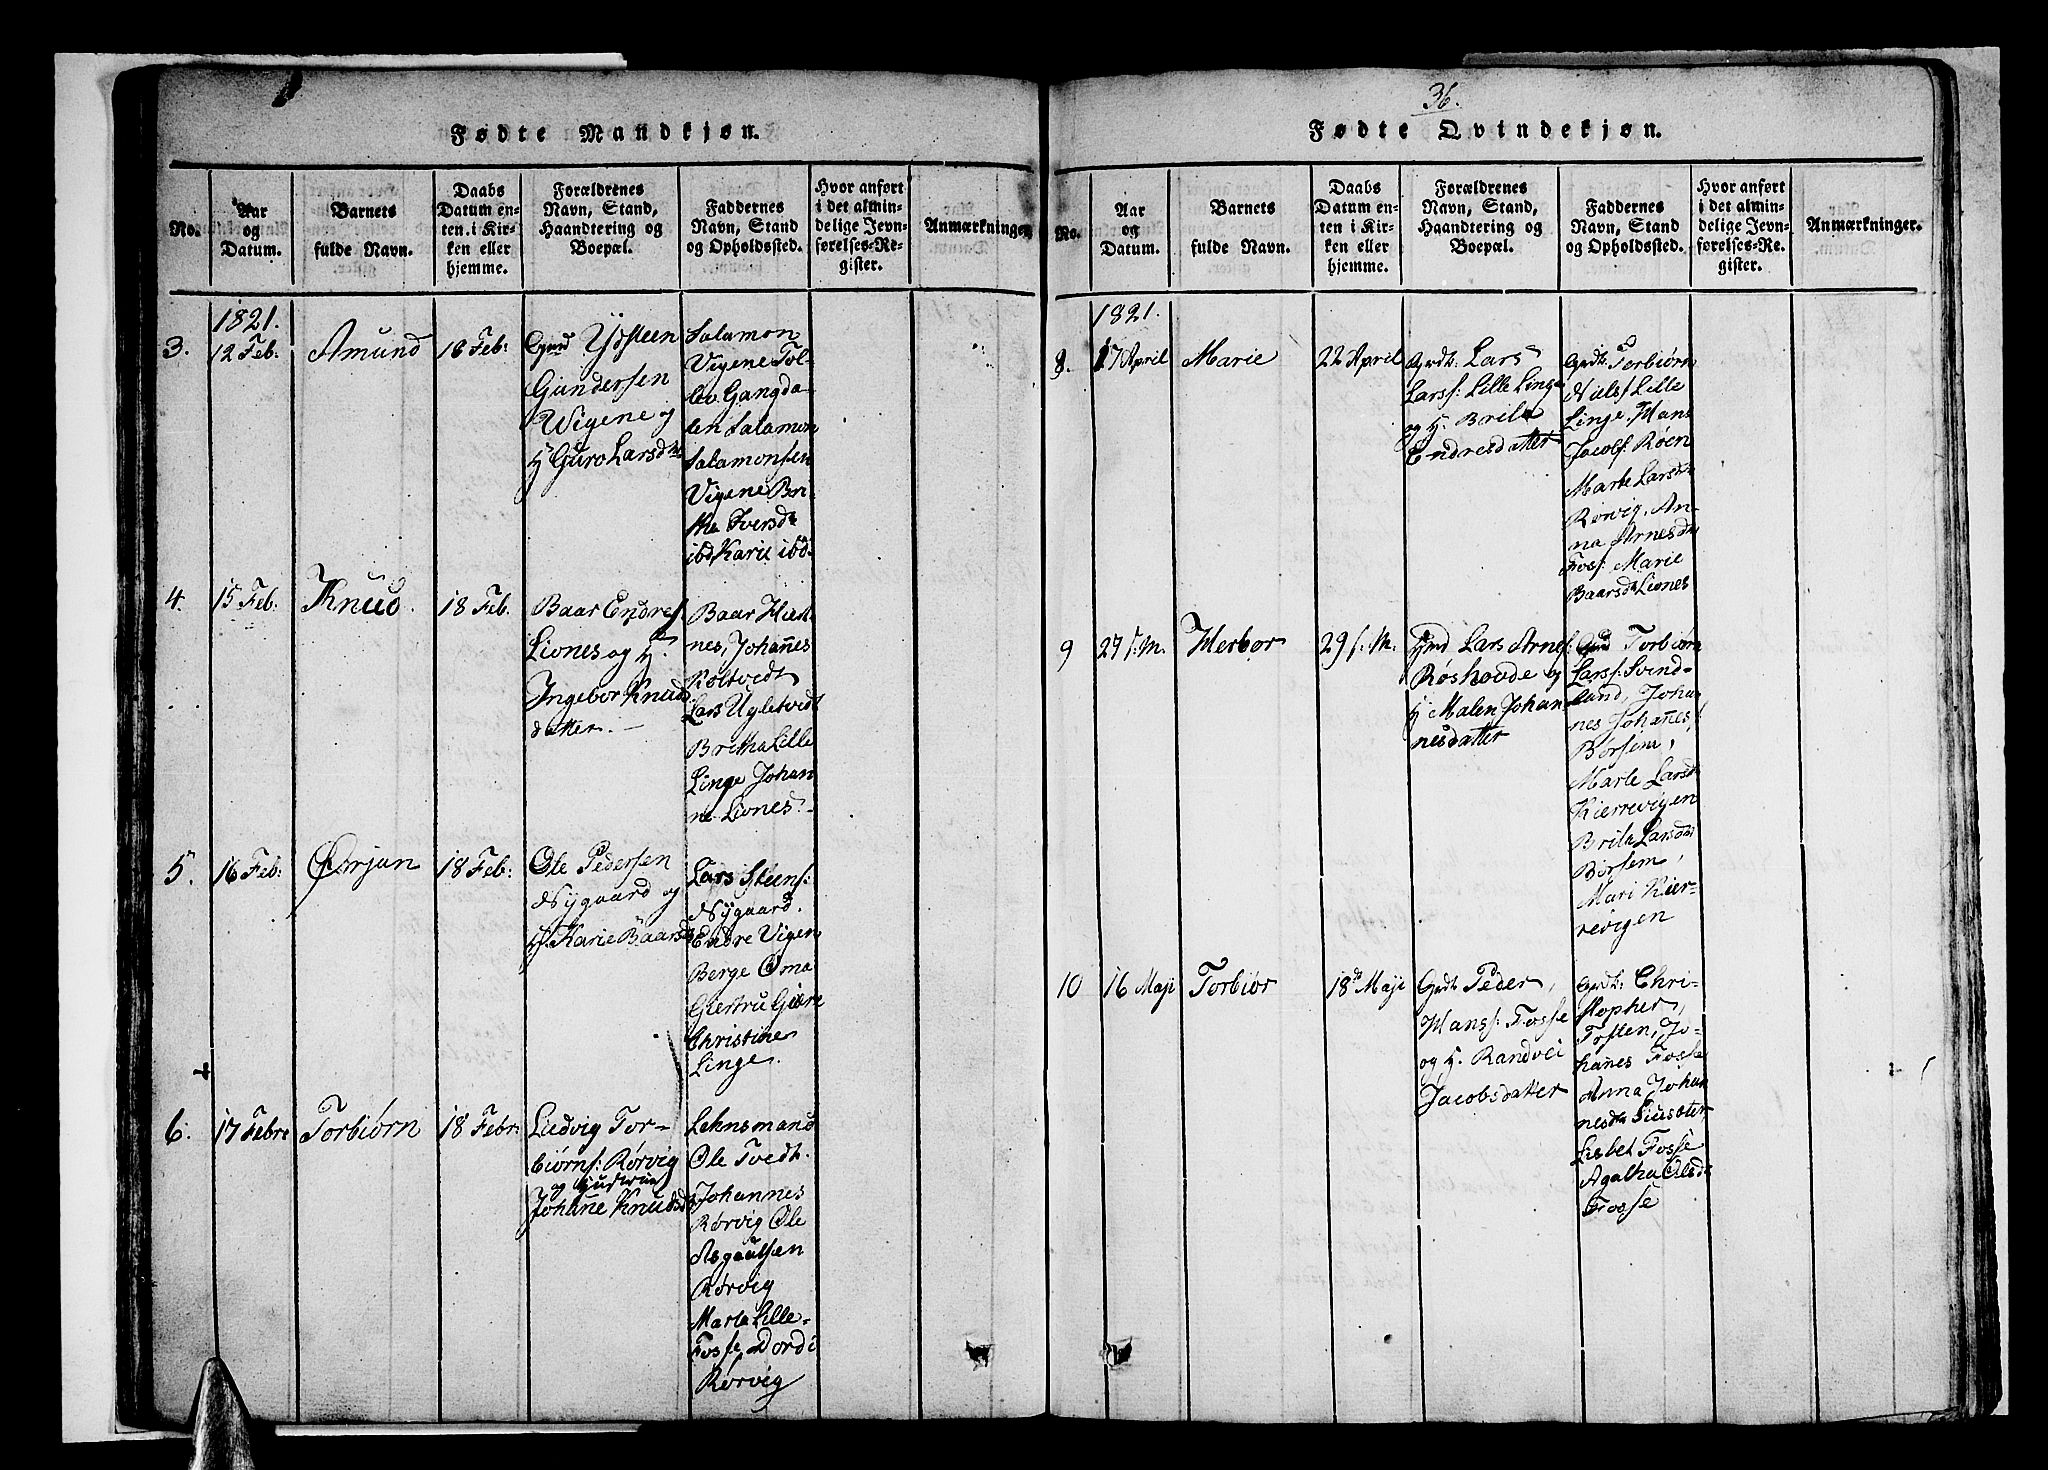 36.
Fødte Mandkjøn.
No.
Aar
og
Datum.
Barnets
fulde Navn.
Daabs
Datum en-
ten i Kir-
ken eller
hjemme.
Forældrenes
Navn, Stand,
Haandtering og
Boepæl.
Faddernes
Navn, Stand
og Opholdssted.
Hvor anført
i det almin-
delige Jevn-
førelses-Re-
gister.
Anmærkninger
1821.
3.
12 Feb:
Amund
18 Feb:
Ysteen
Gundersen
Wigene og
H Guro Larsdtr
Salamon
Vigene Tol-
lev Gangda-
len Salamon
Salamonsen
Vigene Bri-
the Iversdtr
ibd, Karie ibd.
4.
15 Feb:
Knud.
18 Feb.
Baar Endres
Liones og H.
Ingebor Knuds
datter.
Baar Hiert-
nes, Johañes
Roltvedt
Lars Ugletvedt
Britha Lille
Linge Johan
ne Liones.
5.
16 Feb:
Ørjan
18 Feb:
Ole Pedersen
Nygaard og
H. Karie Baarsd
Lars Steens:
Nygaard.
Endre Vigen
Berge Oma
Giertru Giere
Christine
Linge.
6.
17 Febr
Torbiørn
18 Febr:
Ludvig Tor-
biørns: Rørvig
og Hustrue
Johañe Knudsd
Lehnsmand
Ole Tvedt.
Johannes
Rørvig Ole
Asgautsen
Rørvig
Marta Lille-
Fosse Dordi
Rørvig
Fødte Qvindekjøn.
No.
Aar
og
Datum.
Barnets
fulde Navn.
Daabs
Datum en-
ten i Kir-
ken eller
hjemme.
Forældrenes
Navn, Stand,
Haandtering og
Boepæl.
Faddernes
Navn, Stand
og Opholdssted.
Hvor anført
i det almin-
delige Jevn-
førelses-Re-
gister.
Anmærkninger.
1821.
8.
17 April
Marie
22 April
Grdb. Lars
Larss: Lille Linge
og H. Brita
Endresdatter
Grdb. Torbiørn
Niels: Lille
Linge, Hans
Jacobs: Røen
Marte Larsdtr
Rørvig, An-
na Arnesdtr
Foss: Marie
Baarsdtr Liones
9
27 s: M.
Herbor
29 s: M.
Hmd Lars Arnes:
Røshovde og
H Malen Johan
nesdatter
Torbiørn
Larss: Svind-
land, Johan
nes Johañes:
Børsem,
Marte Larsdtr
Kierrevigen
Brita Larsdtr
Børsem,
Mari Kier-
revigen
10
16 Maji
Torbiør
18de Maji
Grdb: Peder
Hans: Fosse
og H. Randvei
Jacobsdatter
Grdb: Chri-
stopher
Toften, Jo-
hañes Fosse
Anna Johan
nesdtr Tiusæter
Lisbet Fosse
Agatha Olsdtr
Fosse